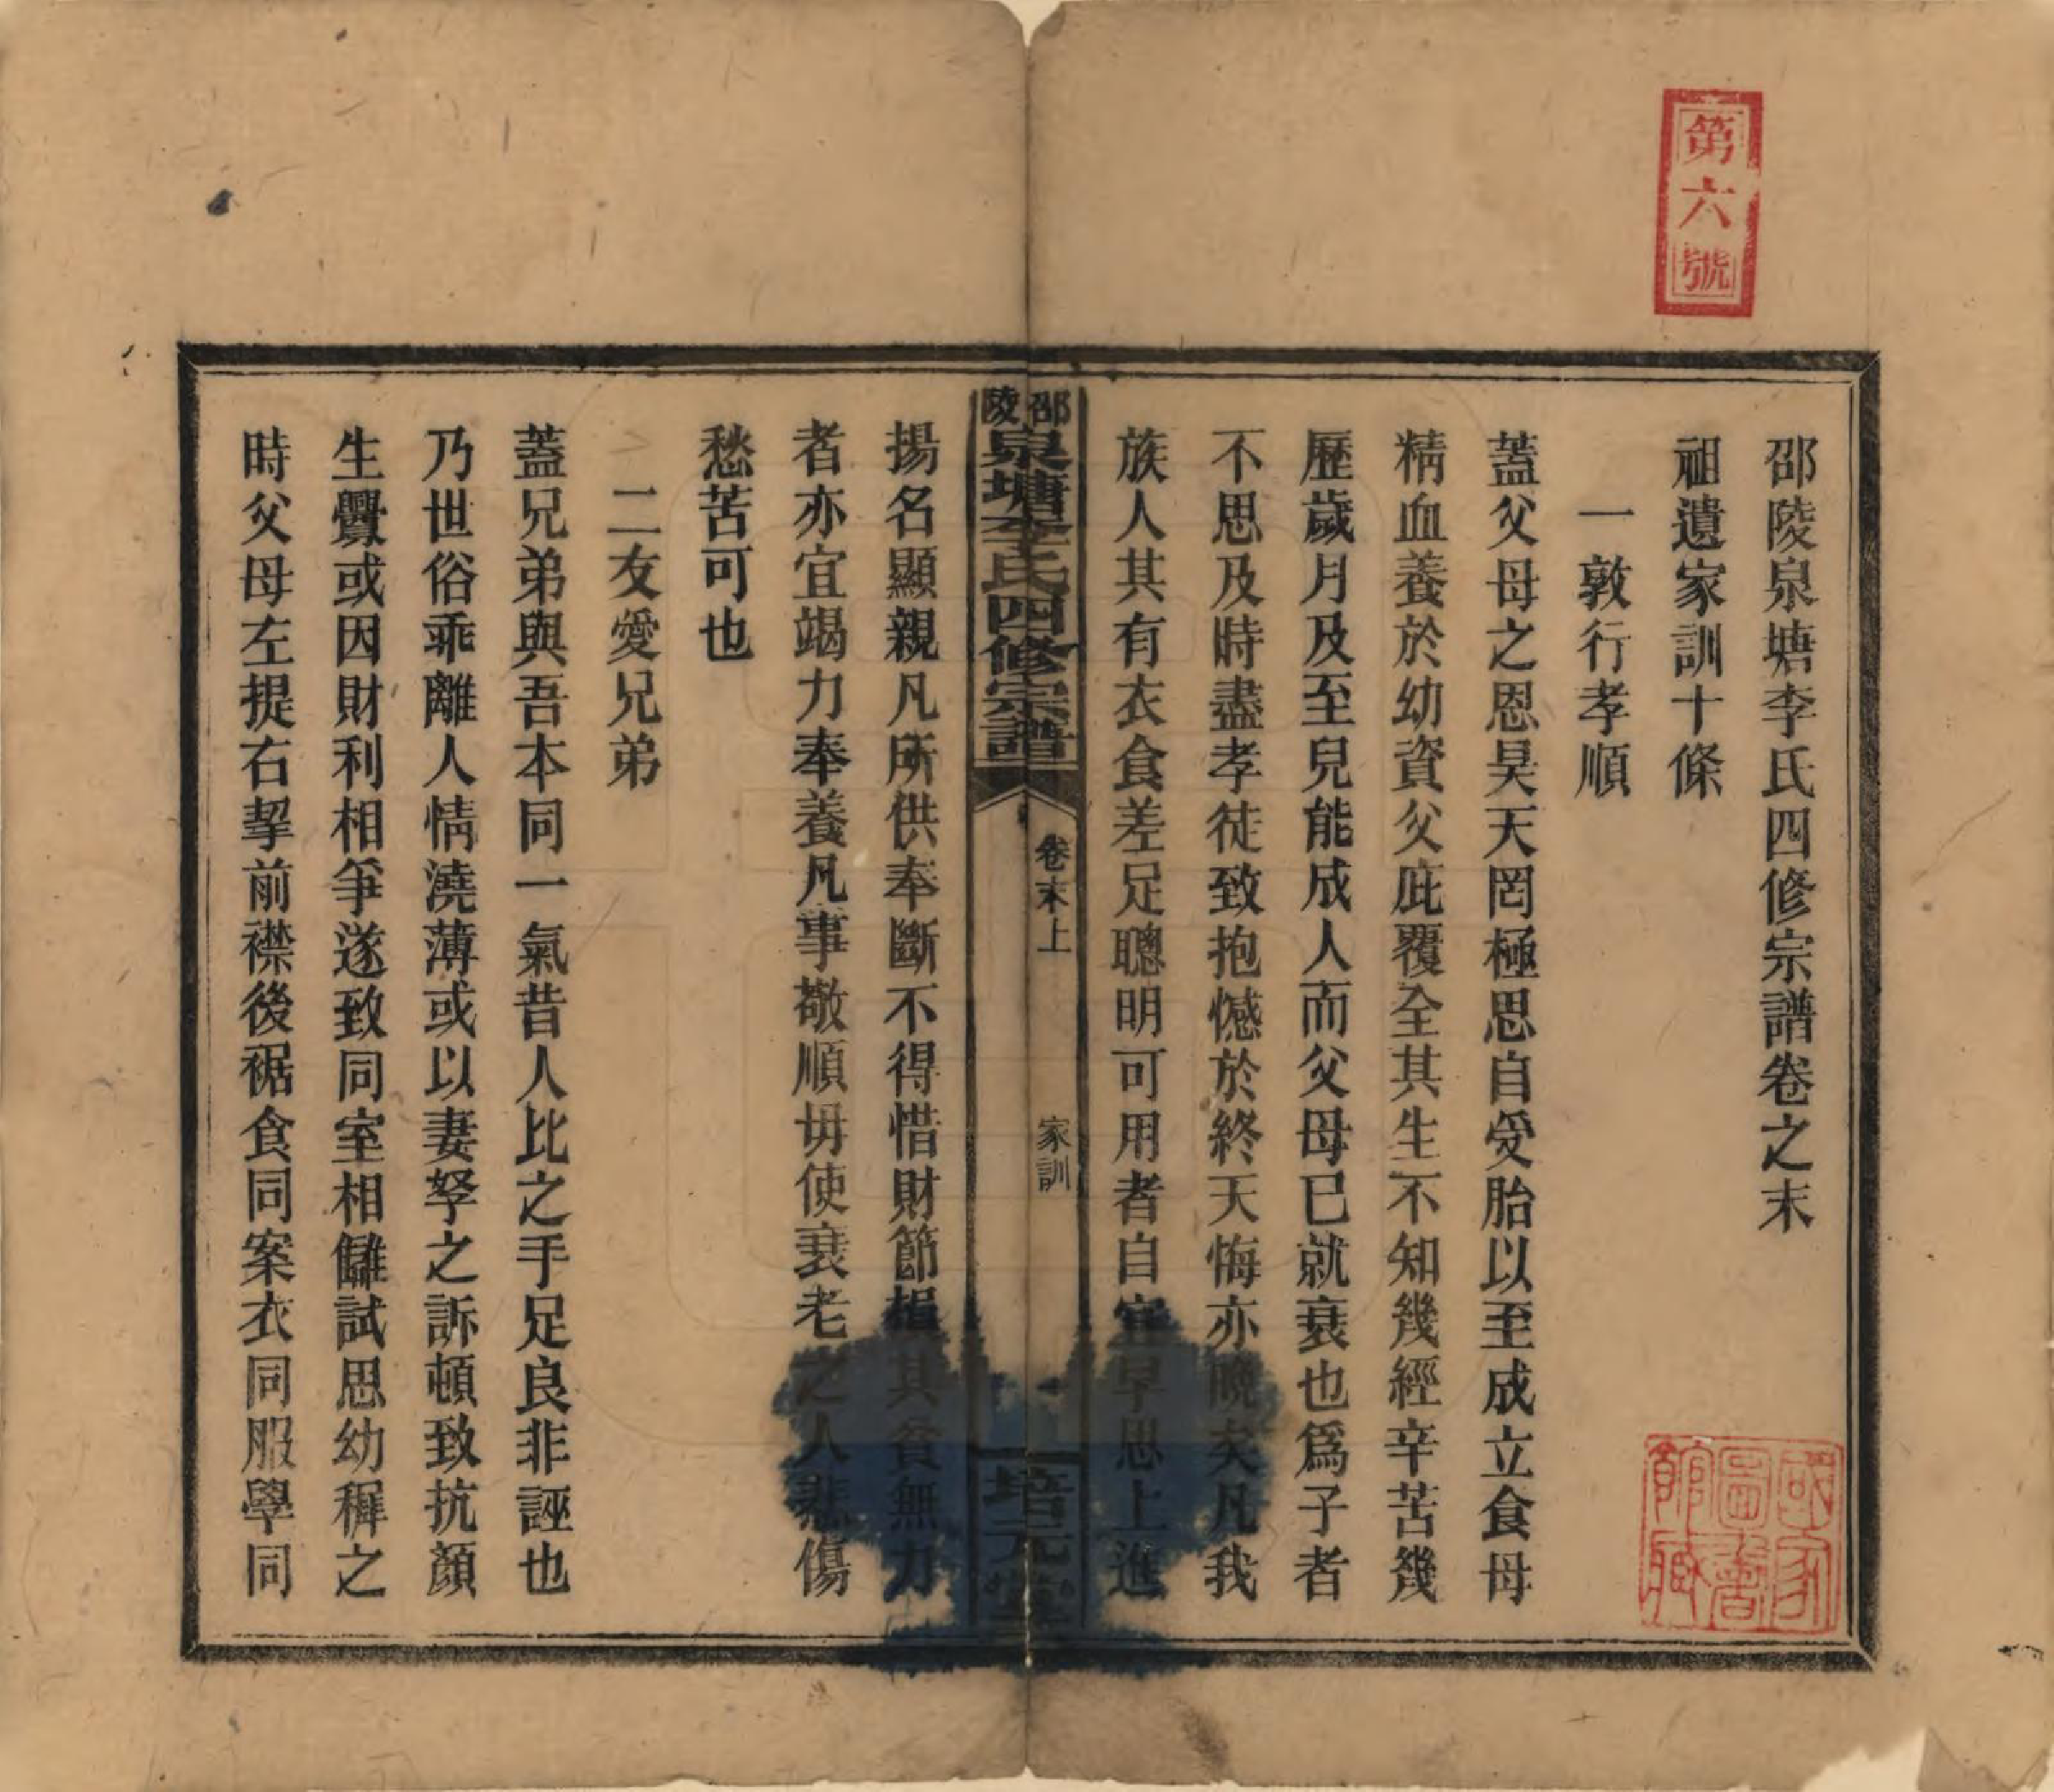 第六號
邵陵泉塘李氏四修宗譜卷之末
祖遺家訓十條
一敦行孝順
蓋父母之恩昊天罔極思自受胎以至成立食母
精血養於幼資父庇覆全其生不知幾經辛苦幾
歷歲月及至兒能成人而父母已就衰也爲子者
不思及時盡孝徒致抱憾於終天悔亦晚矣凡我
族人其有衣食差足聰明可用者自宜早思上進
邵陵泉塘李氏四修宗譜
卷末上
家訓
培元堂
揚名顯親凡所供奉斷不得惜財節損其貧無力
者亦宜竭力奉養凡事敬順毋使衰老之人悲傷
愁苦可也
二友愛兄弟
蓋兄弟與吾本同一氣昔人比之手足良非誣也
乃世俗乖離人情澆薄或以妻孥之訴頓致抗顏
生釁或因財利相爭遂致同室相讎試思幼穉之
時父母左提右挈前襟後裾食同案衣同服學同
國家圖書館藏